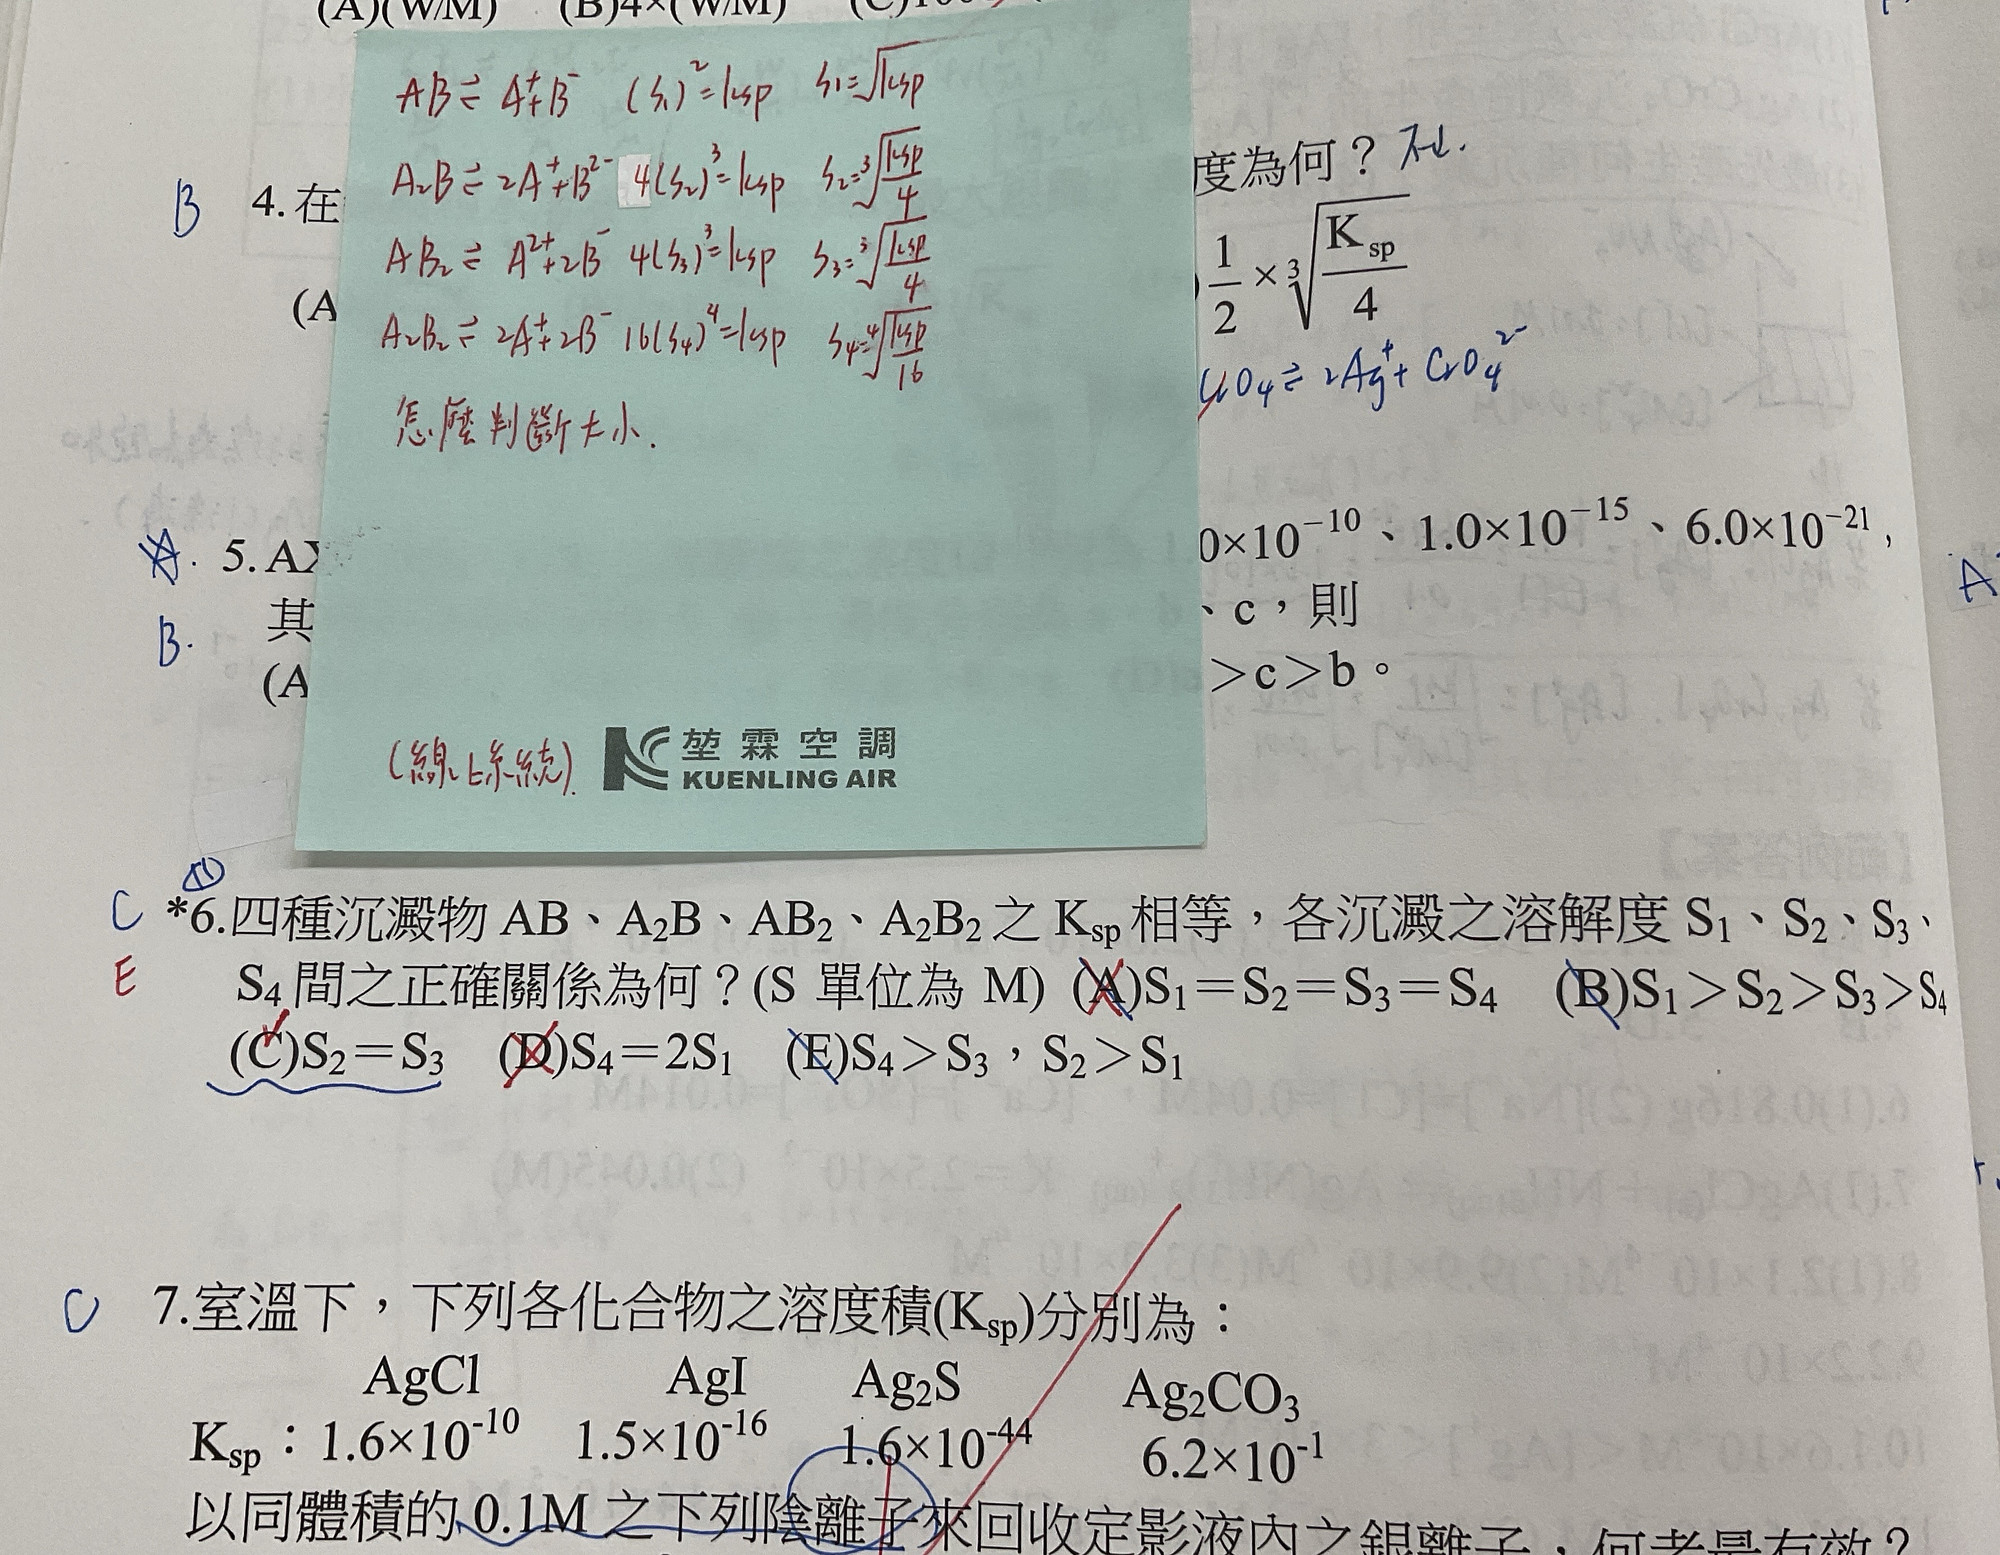 (A)(W/M) (B)4×(W/M)
AB⇌A⁺+B⁻ (S₁)²=ksp S₁=√ksp
A₂B⇌2A⁺+B²⁻ 4(S₂)³=ksp S₂=³√(ksp/4)
AB₂⇌A²⁺+2B⁻ 4(S₃)³=ksp S₃=³√(ksp/4)
A₂B₂⇌2A⁺+2B⁻ 16(S₄)⁴=ksp S₄=⁴√(ksp/16)
怎麼判斷大小.
(線上系統).
堃霖空調
KUENLING AIR
B 4.在 度為何？
(A )1/2×³√(Ksp/4)
O₄⇌2Ag⁺+CrO₄²⁻
A. 5.AX 0×10⁻¹⁰、1.0×10⁻¹⁵、6.0×10⁻²¹，
B. 其 、c，則
(A ＞c＞b。
C *6.四種沉澱物 AB、A₂B、AB₂、A₂B₂之 Ksp 相等，各沉澱之溶解度 S₁、S₂、S₃、
E S₄間之正確關係為何？(S 單位為 M) (A)S₁＝S₂＝S₃＝S₄ (B)S₁＞S₂＞S₃＞S₄
(C)S₂＝S₃ (D)S₄＝2S₁ (E)S₄＞S₃，S₂＞S₁
C 7.室溫下，下列各化合物之溶度積(Ksp)分別為：
AgCl AgI Ag₂S Ag₂CO₃
Ksp：1.6×10⁻¹⁰ 1.5×10⁻¹⁶ 1.6×10⁻⁴⁴ 6.2×10⁻¹
以同體積的 0.1M 之下列陰離子來回收定影液內之銀離子，何者最有效？